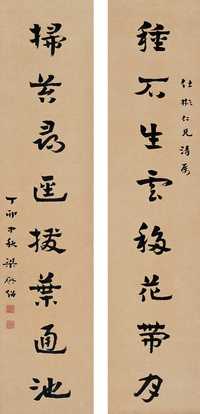 仕彬仁兄清属
種石生雲移花帶月
掃苔尋徑拔葉通池
丁卯中秋 梁啟超